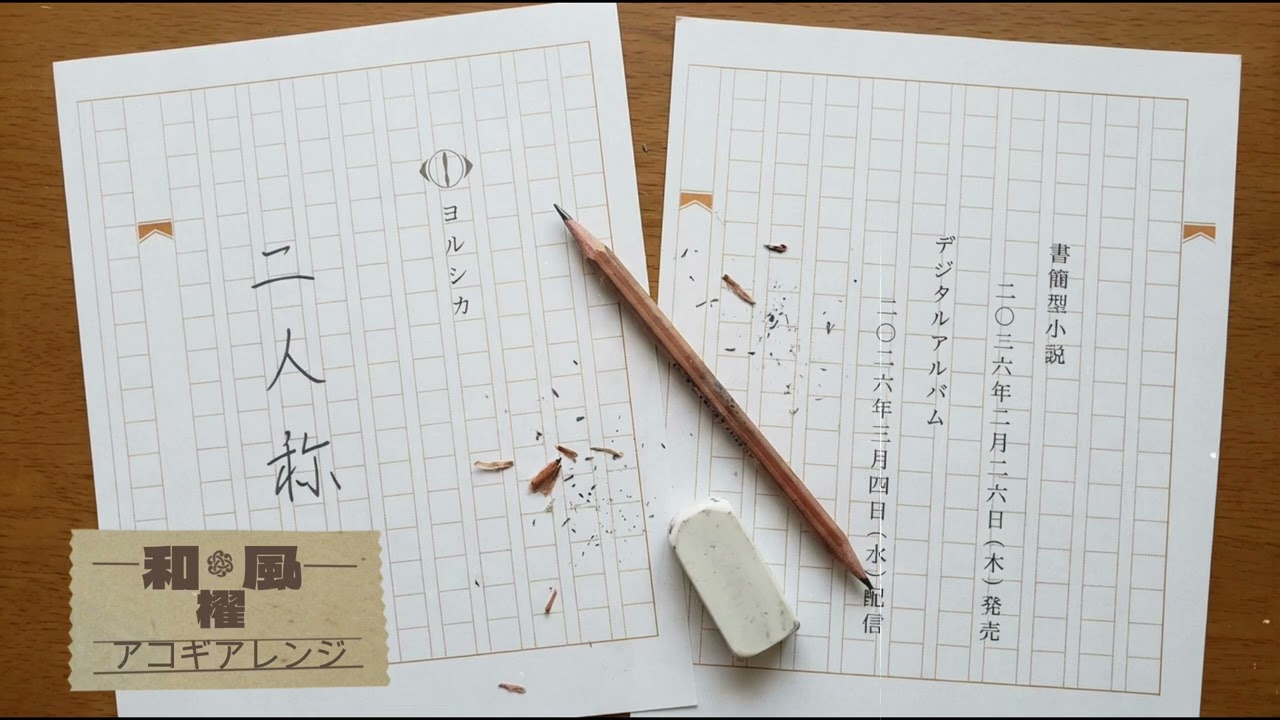 書簡型小説
二〇三六年二月二六日(木)発売
デジタルアルバム
二〇二六年三月四日(水)配信
ヨルシカ
二人称
和風
櫂
アコギアレンジ